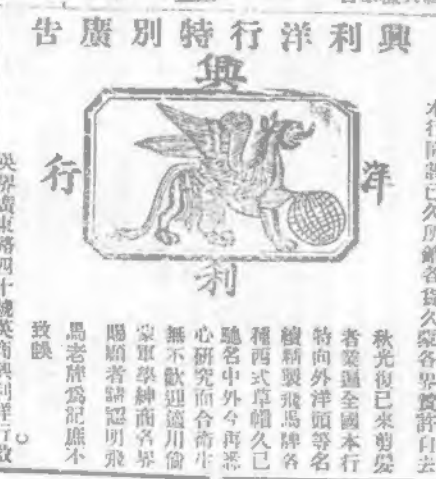 興利洋行特別廣告
興
利
洋
行
本行開設已久所銷各貨久蒙各界贊許自去
秋光復已來剪髮
者業遍全國本行
特向外洋頭等名
續新製飛馬牌各
種西式草帽久已
馳名中外今再悉
心研究而合衛生
無不歡迎遠川倘
蒙軍學紳商各界
賜顧者請認明飛
馬老牌為記庶不
致誤
英界廣東路四十號英商興利洋行啟